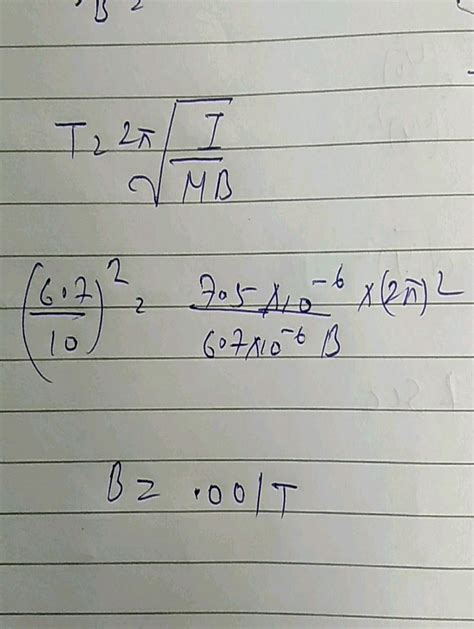 B =
T = 2π √(I/MB)
(6.7/10)² = 7.5 × 10⁻⁶ / 6.7×10⁻⁶ B × (2π)²
B = .001T